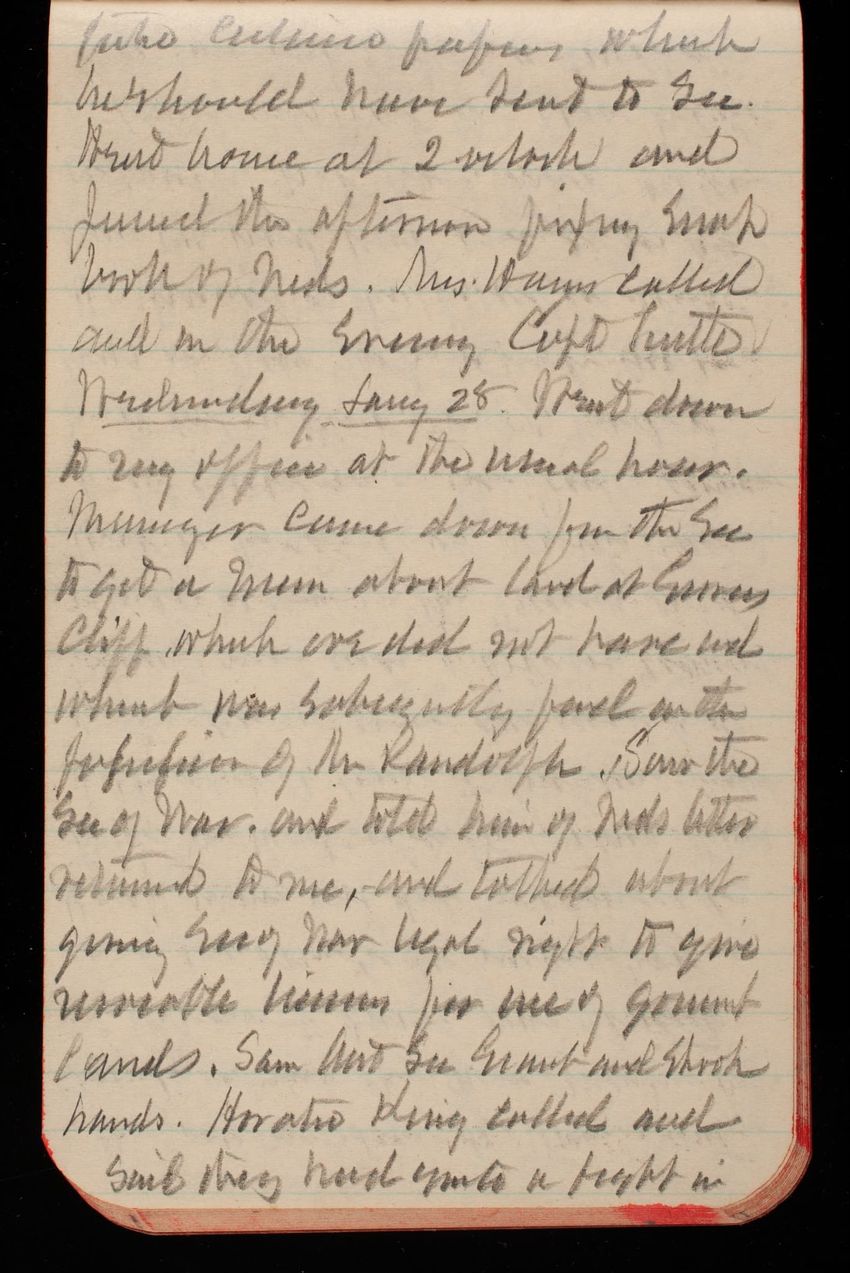 papers which
he should have sent to Sec.
Went home at 2 oclock and
the afternoon fixing scrap
book of Neds. Mrs. called
and in the Evening Capt
Wednesday Jany 28. Went down
to my office at the usual hour.
came down from the Sec
to get a Mem about land at
Cliff, which we did not have and
which was subsequently on the
of Mr Randolph. Saw the
Sec of War. and told him of Neds letter
returned to me, and talked about
giving Sec of War legal right to give
for use of
lands. Saw Asst Sec Grant and shook
hands. Horatio King called and
said they had quite a fight in